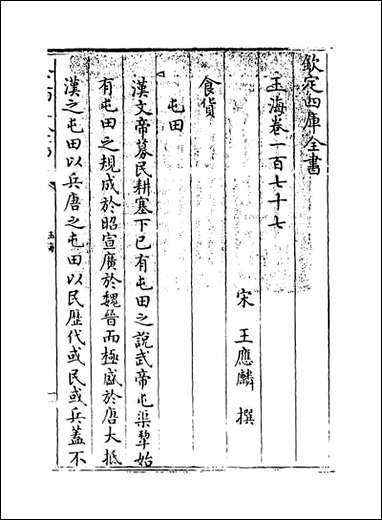 欽定四庫全書
玉海卷一百七十七
宋 王應麟 撰
食貨
屯田
漢文帝募民耕塞下已有屯田之説武帝屯渠犂始
有屯田之規成於昭宣廣於魏晉而極盛於唐大抵
漢之屯田以兵唐之屯田以民歴代或民或兵蓋不
玉海